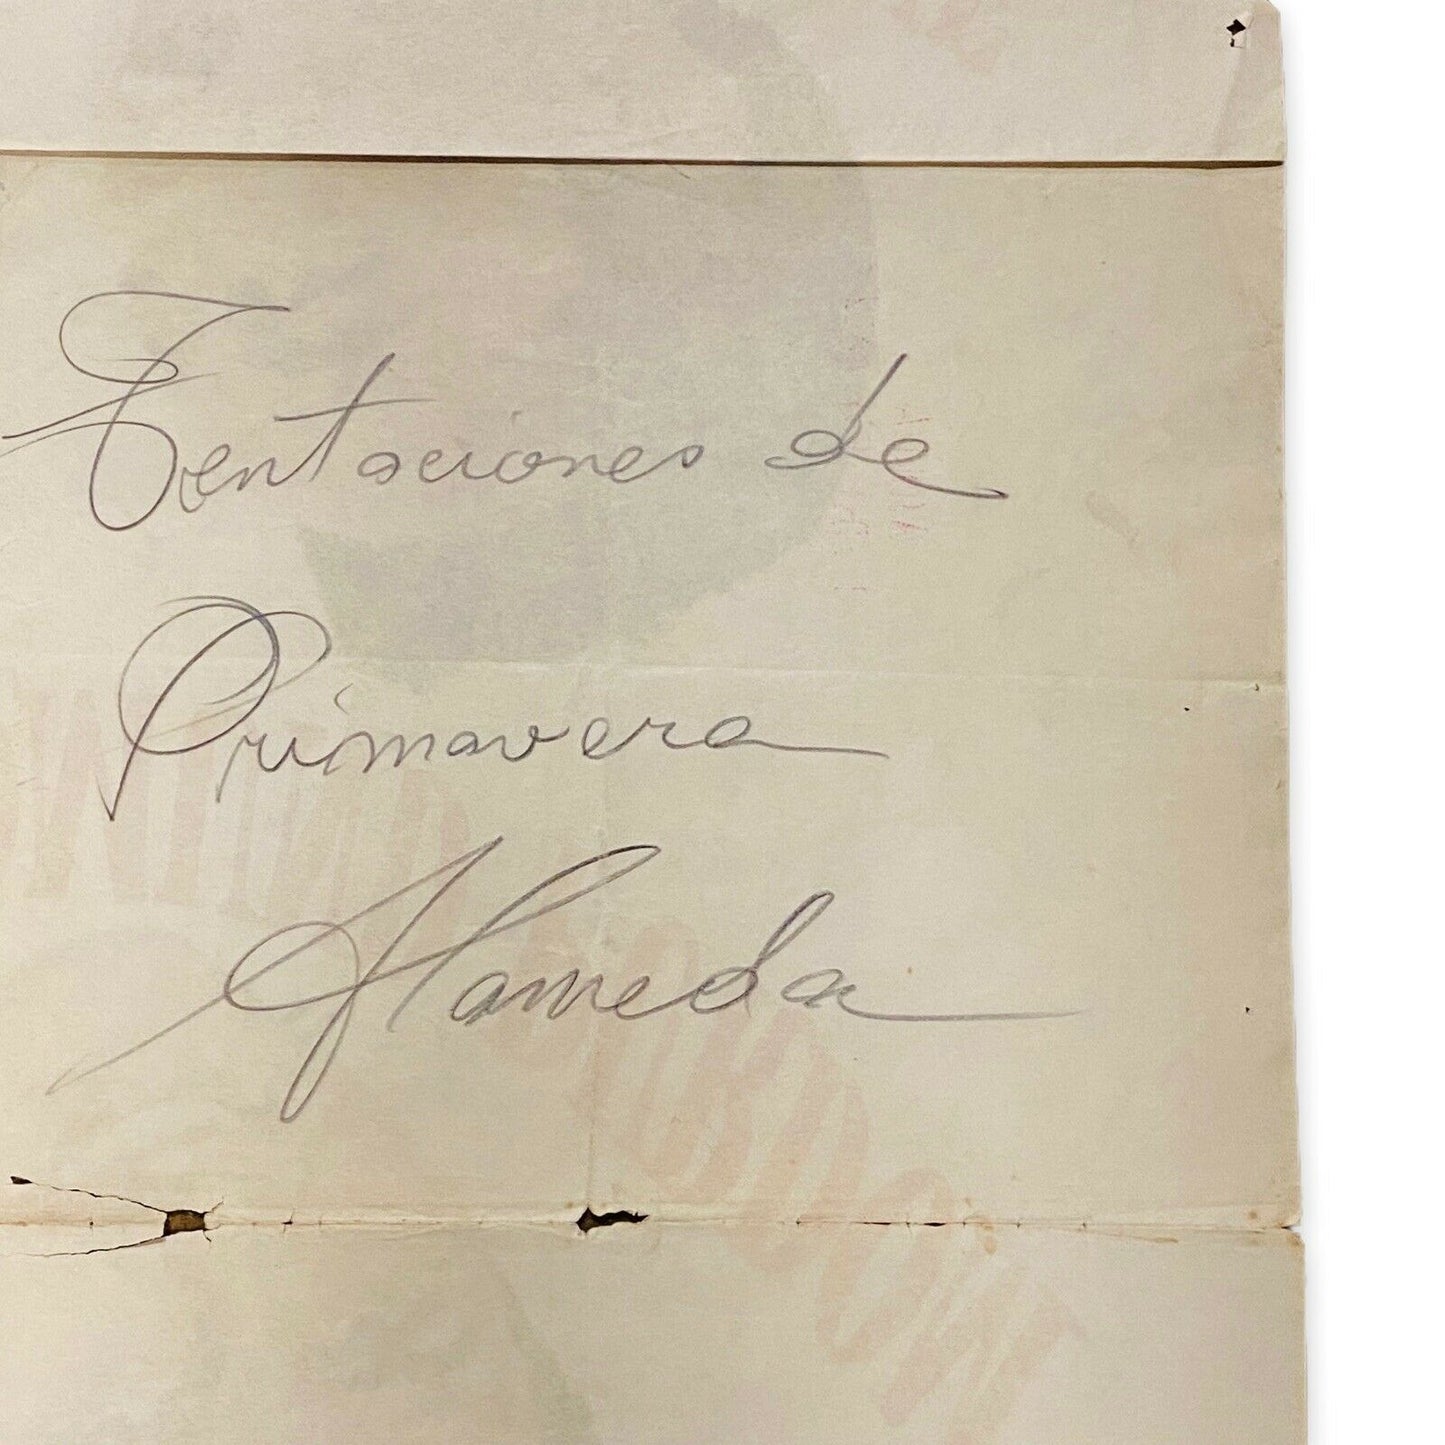 Tentaciones de
Primavera
Alameda